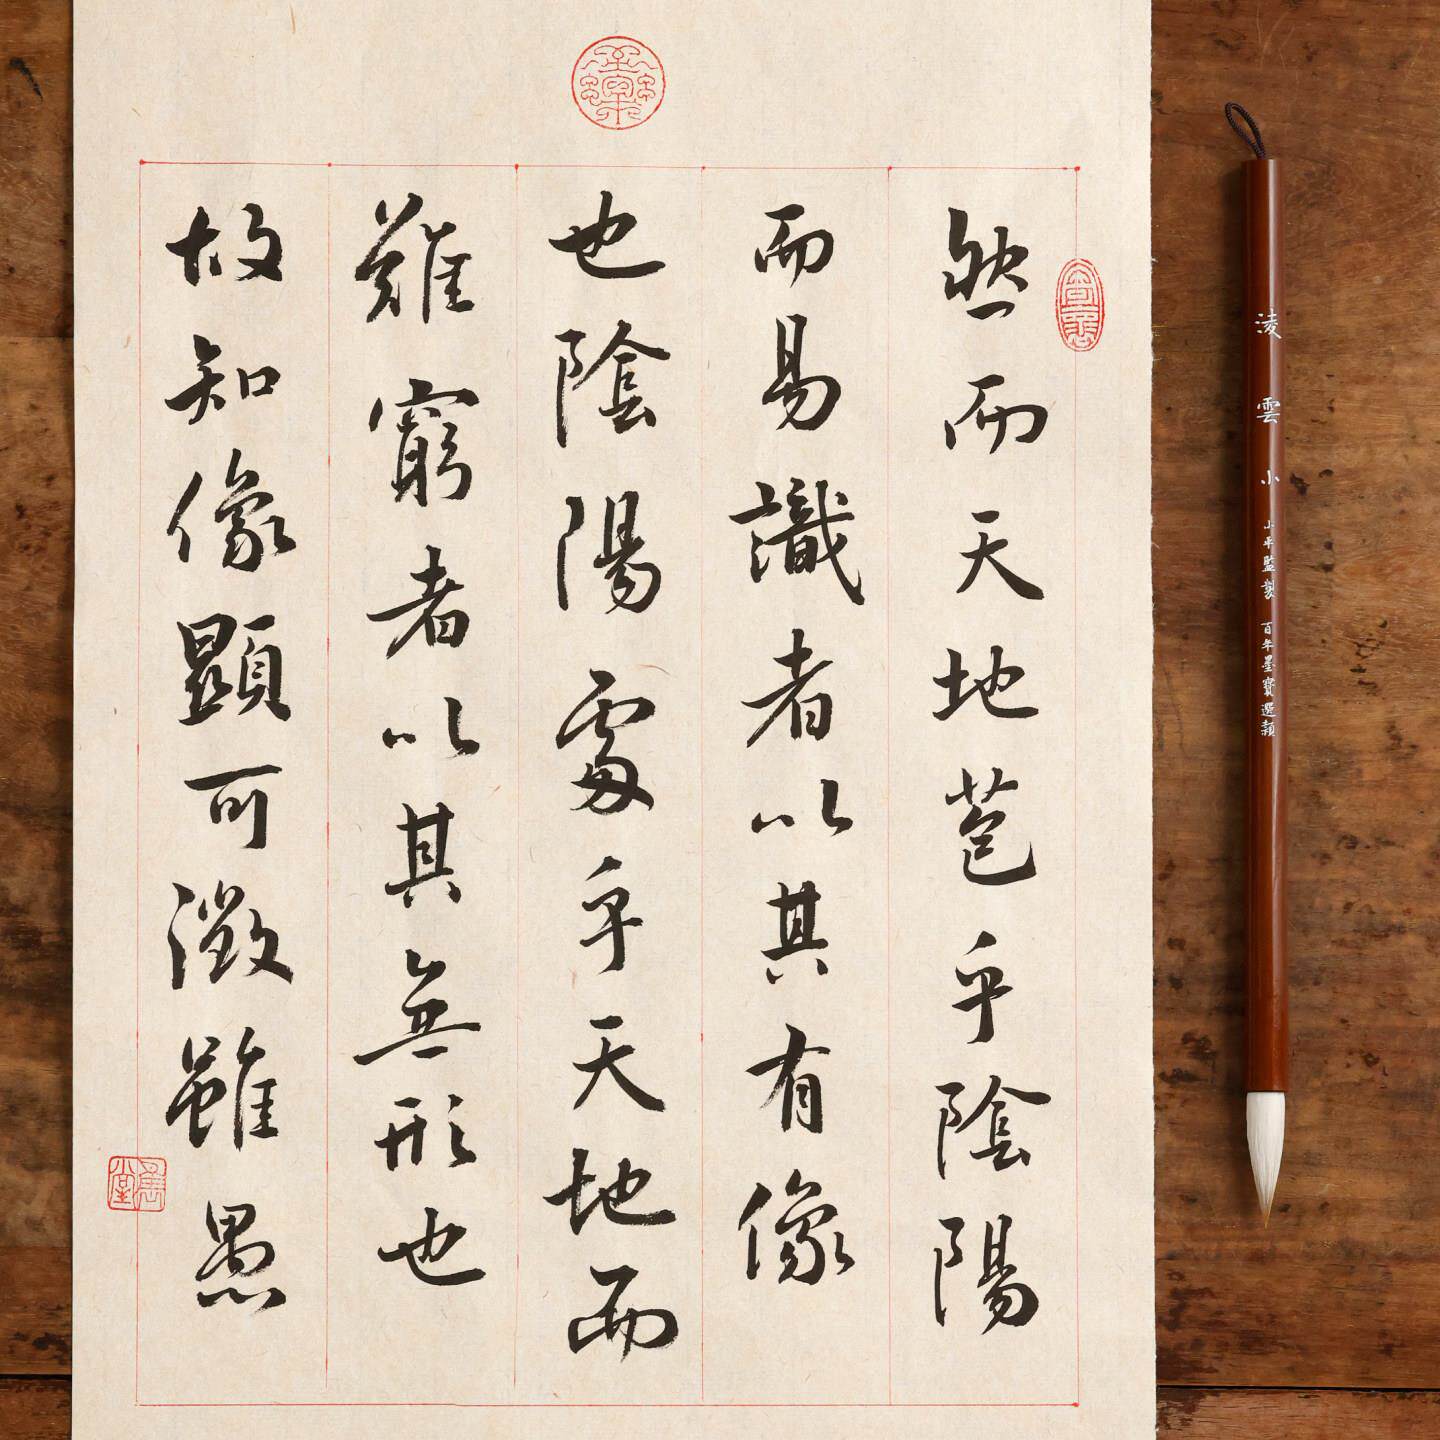 然而天地苞乎陰陽
而易識者以其有像
也陰陽處乎天地而
難窮者以其無形也
故知像顯可徵雖愚
凌雲小
小平監製 百年墨寶選穎